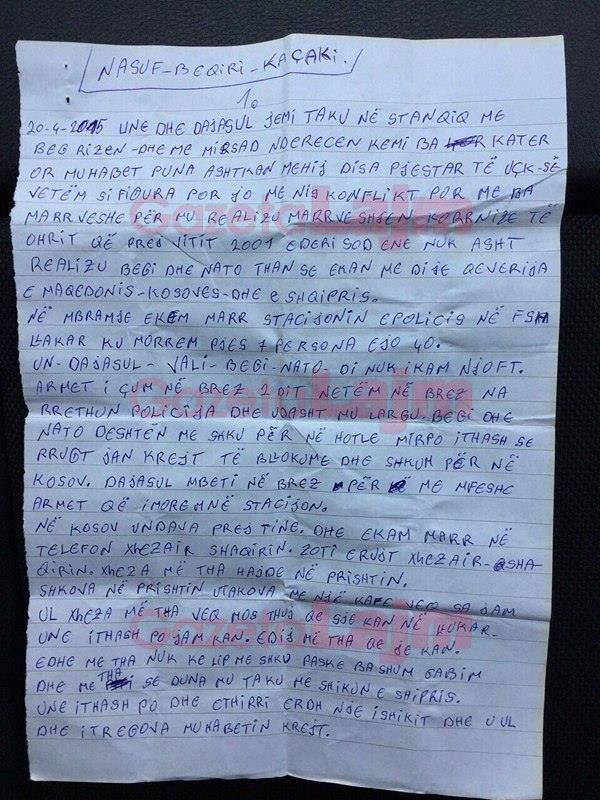 NASUF-BEQIRI-KAÇAKI.
1.
20-4-2015 UNE DHE DAJASUL JEMI TAKU NË STANQIQ ME
BEG RIZEN-DHE ME MIRSAD NDERECEN KEMI BA KATER
OR MUHABET PUNA ASHTKAN MEHIJ DISA PJESTAR TË UÇK-SË
VETËM SI FIGURA POR JO ME NIS KONFLIKT POR ME BA
MARRVESHE PËR MU REALIZU MARRVESHJEN KORRNIZE TË
OHRIT QË PREJ VITIT 2001 EDERI SOD ENE NUK ASHT
REALIZU BEGI DHE NATO THAN SE EKAN ME DIJE QEVERIJA
E MAQEDONIS-KOSOVES-DHE E SHQIPRIS.
NË MBRAMJE EKEM MARR STACIJONIN EPOLICIS NË FSH
LLAKAR KU MORREM PJES 7 PERSONA EJO 40.
UN-DAJASUL-VALI-BEGI-NATO-DI NUK IKAM NJOFT.
ARMET I ÇUM NË BREZ 2 DIT NETËM NË BREZ NA
RRETHUN POLICIJA DHE UDASHT MU LARGU. BEGI DHE
NATO DESHTËN ME SHKU PËR NË HOTLE MIRPO ITHASH SE
RRUGT JAN KREJT TË BLLOKUME DHE SHKUM PËR NË
KOSOV. DAJASUL MBETI NË BREZ PËR ME MPESHE
ARMET QË IMOREM NË STACIJON.
NË KOSOV UNDAVA PREJ TINE. DHE EKAM MARR NË
TELEFON XHEZAIR SHAQIRIN. ZOTI ERUJT XHEZAIR-SHA-
QIRIN. XHEZA MË THA HAJDE NË PRISHTIN.
SHKOVA NË PRISHTIN UTAKOVA ME NJË KAFE VEQ SA JAM
UL XHEZA MË THA VEQ MOS THUJ QE SJE KAN NË LLUKAR-
UNE ITHASH PO JAM KAN. EDIJ MË THA QE JE KAN.
EDHE ME THA NUK KE LIP ME SHKU PASKE BA SHUM GABIM
DHE ME THA SE DUNA MU TAKU ME SHIKUN E SHIPRIS.
UNE ITHASH PO DHE ETHIRRI ERDH NJE ISHIKIT DHE U UL
DHE ITREGOVA MUHABETIN KREJT.